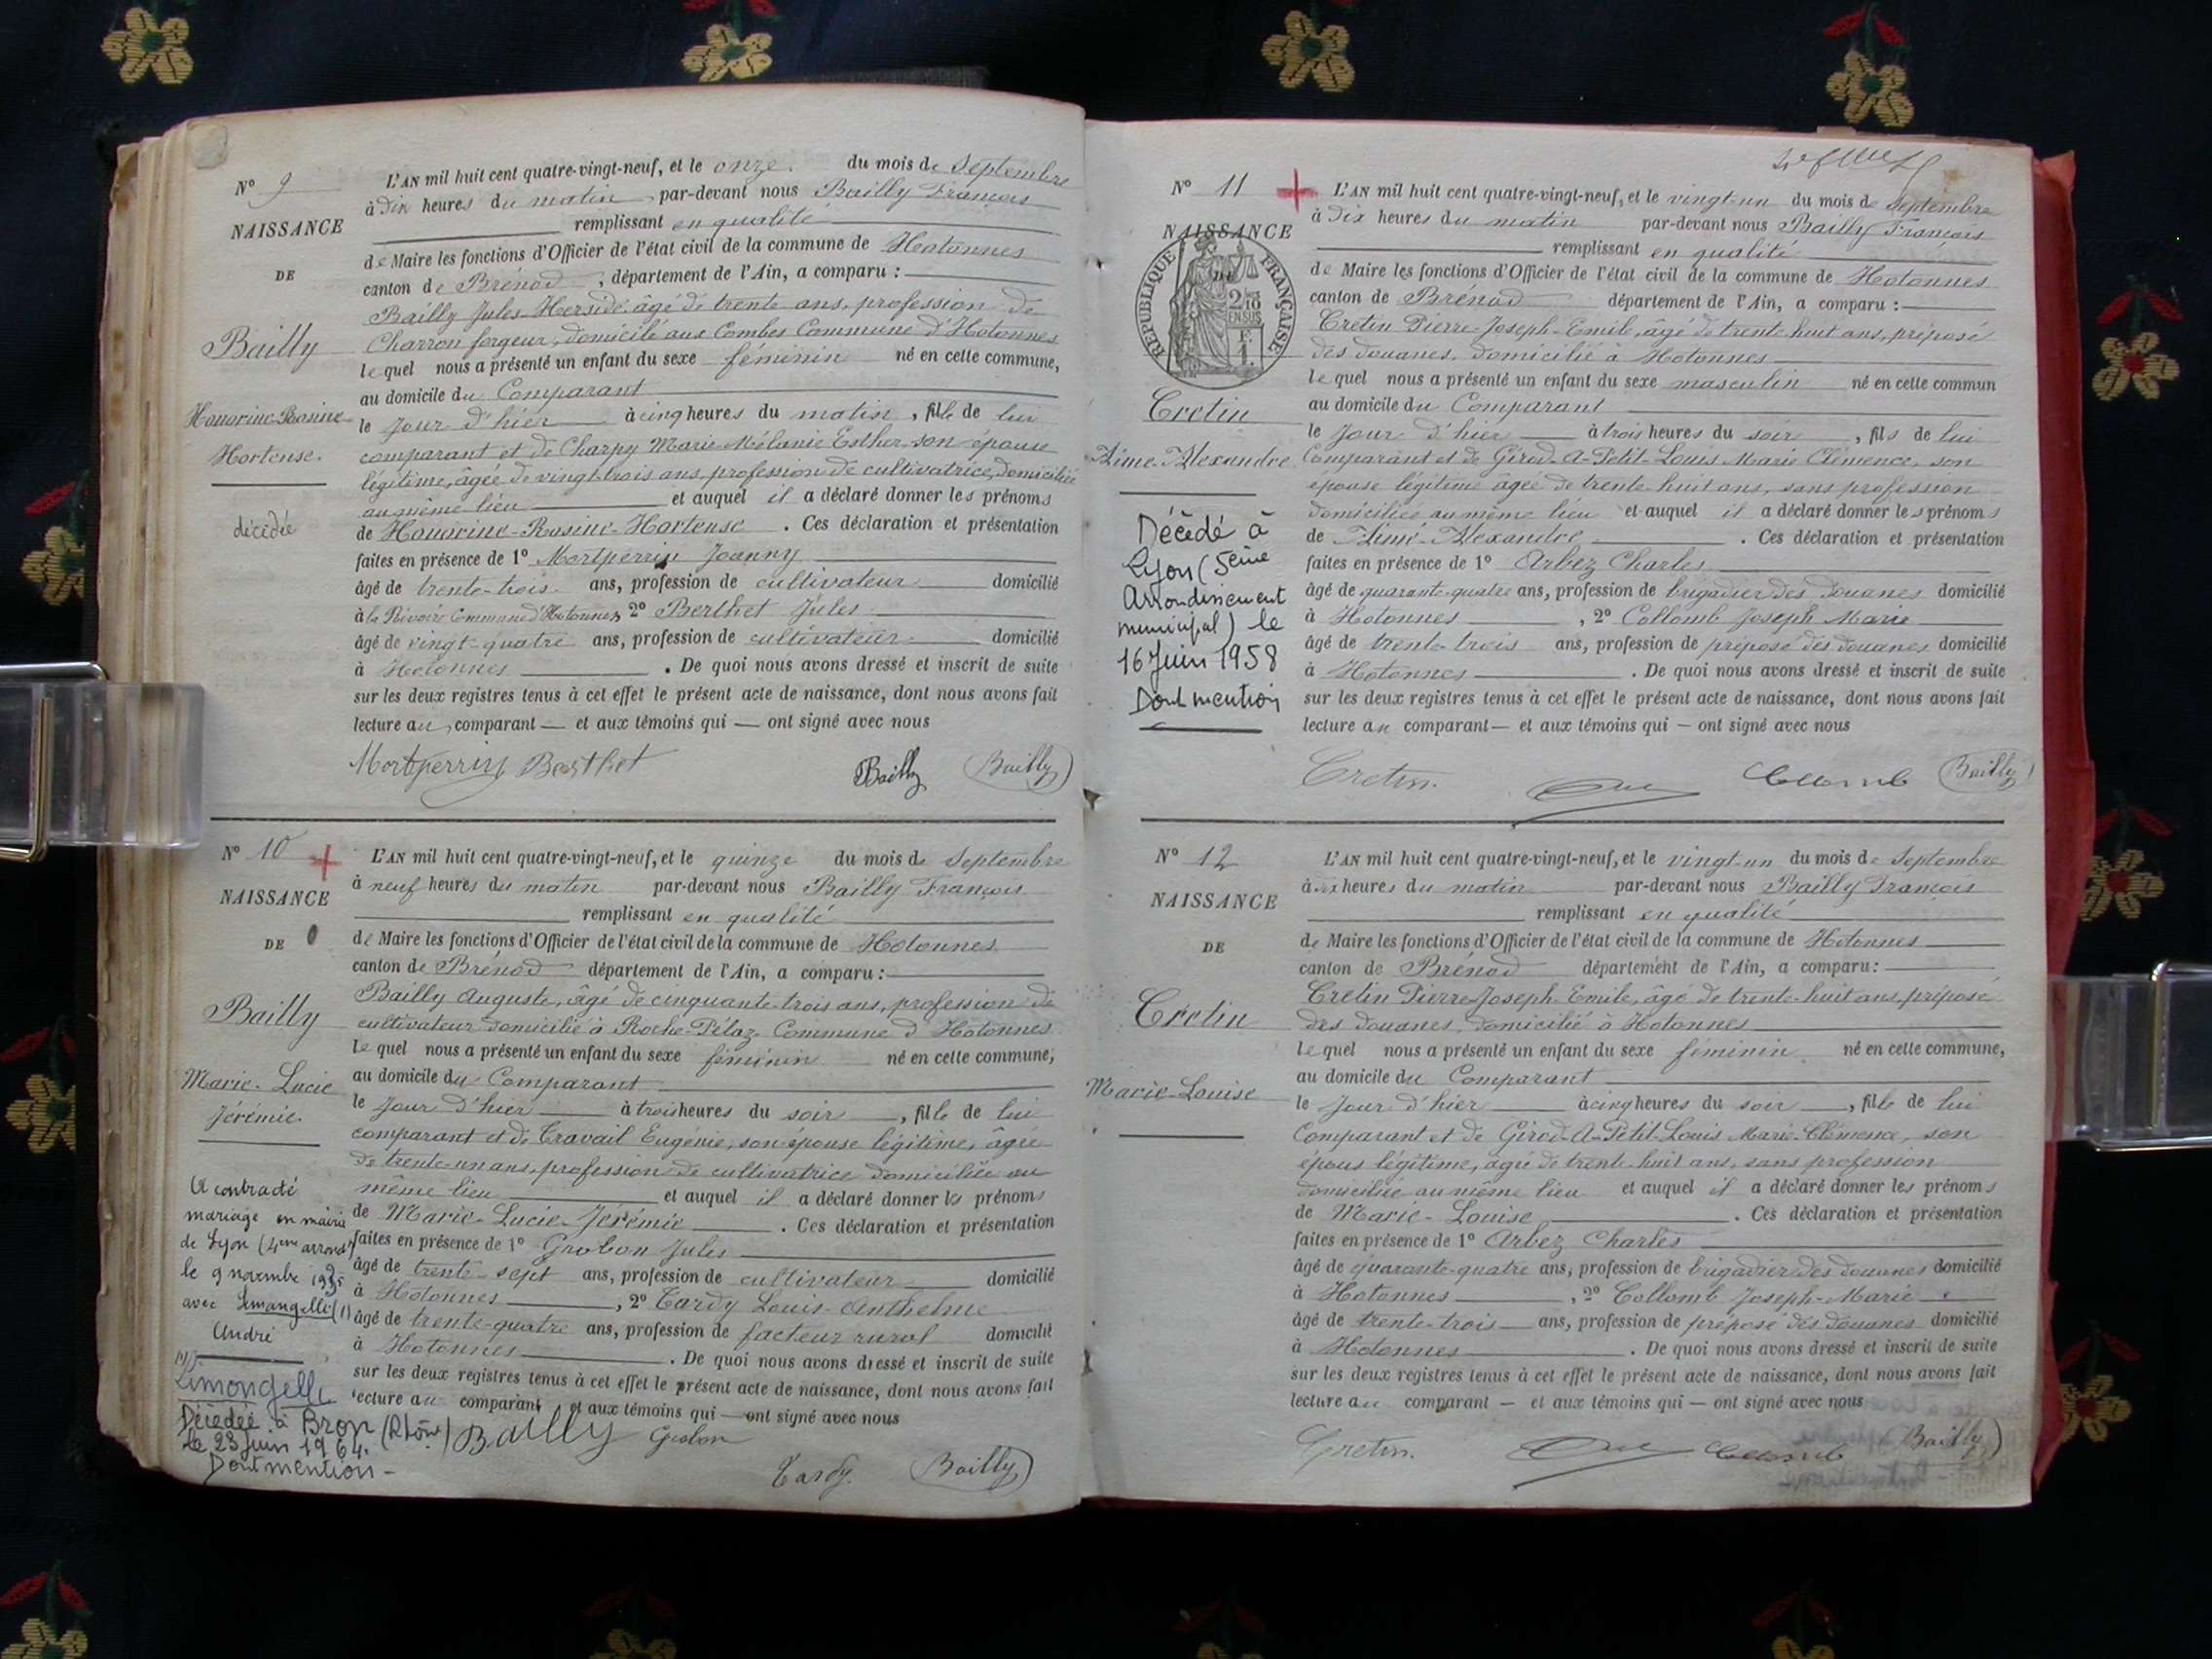 N° 9
NAISSANCE
DE
Bailly
Honorine-Rosine
Hortense.
décédée
L'AN mil huit cent quatre-vingt-neuf, et le onze. du mois de Septembre
à Dix heures du matin par-devant nous Bailly François
remplissant en qualité
de Maire les fonctions d'Officier de l'état civil de la commune de Hotonnes
canton de Brénod, département de l'Ain, a comparu :
Bailly Jules-Herside âgé de trente ans, profession de
Charron forgeur, domicilié aux Combes Commune d'Hotonnes
lequel nous a présenté un enfant du sexe féminin né en cette commune,
au domicile du Comparant
le jour d'hier à cinq heures du matin, fille de lui
comparant et de Charpy Marie Mélanie Esther son épouse
légitime, âgée de vingt-trois ans, profession de cultivatrice, domiciliée
au même lieu et auquel il a déclaré donner les prénoms
de Honorine-Rosine-Hortense. Ces déclaration et présentation
faites en présence de 1° Mortperrin Joanny
âgé de trente-trois ans, profession de cultivateur domicilié
à la Rivoire Commune d'Hotonnes, 2° Berthet Jules
âgé de vingt-quatre ans, profession de cultivateur domicilié
à Hotonnes. De quoi nous avons dressé et inscrit de suite
sur les deux registres tenus à cet effet le présent acte de naissance, dont nous avons fait
lecture au comparant — et aux témoins qui — ont signé avec nous
Mortperrin Berthet Bailly Bailly
N° 10
NAISSANCE
DE
Bailly
Marie-Lucie
Jérémie.
A contracté
mariage en mairie
de Lyon (4eme arrond)
le 9 novembre 1935
avec Limangelli (1)
André
(1)
Limongelli
Décédée à Bron (Rhône)
le 23 juin 1964.
Dont mention -
L'AN mil huit cent quatre-vingt-neuf, et le quinze du mois de Septembre
à neuf heures du matin par-devant nous Bailly François
remplissant en qualité
de Maire les fonctions d'Officier de l'état civil de la commune de Hotonnes
canton de Brénod département de l'Ain, a comparu :
Bailly Auguste, âgé de cinquante-trois ans, profession de
cultivateur domicilié à Roche-Pélaz Commune d'Hotonnes
lequel nous a présenté un enfant du sexe féminin né en cette commune,
au domicile du Comparant
le jour d'hier à trois heures du soir, fille de lui
comparant et de Travail Eugénie, son épouse légitime, âgée
de trente-un ans, profession de cultivatrice domiciliée au
même lieu et auquel il a déclaré donner les prénoms
de Marie-Lucie-Jérémie. Ces déclaration et présentation
faites en présence de 1° Grobon Jules
âgé de trente-sept ans, profession de cultivateur domicilié
à Hotonnes, 2° Tardy Louis-Anthelme
âgé de trente-quatre ans, profession de facteur rural domicilié
à Hotonnes. De quoi nous avons dressé et inscrit de suite
sur les deux registres tenus à cet effet le présent acte de naissance, dont nous avons fait
lecture au comparant et aux témoins qui — ont signé avec nous
Bailly Grobon
Tardy. Bailly
N° 11
NAISSANCE
DE
RÉPUBLIQUE FRANÇAISE
Cretin
Aimé-Alexandre
Décédé à
Lyon (5ème
Arrondissement
municipal) le
16 Juin 1958
Dont mention
L'AN mil huit cent quatre-vingt-neuf, et le vingt-un du mois de Septembre
à Dix heures du matin par-devant nous Bailly François
remplissant en qualité
de Maire les fonctions d'Officier de l'état civil de la commune de Hotonnes
canton de Brénod département de l'Ain, a comparu :
Cretin Pierre-Joseph-Emile, âgé de trente-huit ans, préposé
des douanes, domicilié à Hotonnes
lequel nous a présenté un enfant du sexe masculin né en cette commun
au domicile du Comparant
le jour d'hier à trois heures du soir, fils de lui
Comparant et de Girod-A-Petit-Louis Marie Clémence, son
épouse légitime âgée de trente-huit ans, sans profession
domiciliée au même lieu et auquel il a déclaré donner les prénoms
de Aimé-Alexandre. Ces déclaration et présentation
faites en présence de 1° Arbez Charles
âgé de quarante-quatre ans, profession de brigadier des douanes domicilié
à Hotonnes, 2° Collomb Joseph Marie
âgé de trente-trois ans, profession de préposé des douanes domicilié
à Hotonnes. De quoi nous avons dressé et inscrit de suite
sur les deux registres tenus à cet effet le présent acte de naissance, dont nous avons fait
lecture au comparant — et aux témoins qui — ont signé avec nous
Cretin. Collomb Bailly
N° 12
NAISSANCE
DE
Cretin
Marie-Louise
L'AN mil huit cent quatre-vingt-neuf, et le vingt-un du mois de Septembre
à dix heures du matin par-devant nous Bailly François
remplissant en qualité
de Maire les fonctions d'Officier de l'état civil de la commune de Hotonnes
canton de Brénod département de l'Ain, a comparu :
Cretin Pierre-Joseph-Emile, âgé de trente-huit ans, préposé
des douanes, domicilié à Hotonnes
lequel nous a présenté un enfant du sexe féminin né en cette commune,
au domicile du Comparant
le jour d'hier à cinq heures du soir, fille de lui
Comparant et de Girod-A-Petit-Louis Marie-Clémence, son
épous légitime, âgée de trente-huit ans, sans profession
domiciliée au même lieu et auquel il a déclaré donner les prénoms
de Marie-Louise. Ces déclaration et présentation
faites en présence de 1° Arbez Charles
âgé de quarante-quatre ans, profession de brigadier des douanes domicilié
à Hotonnes, 2° Collomb Joseph-Marie
âgé de trente-trois ans, profession de préposé des douanes domicilié
à Hotonnes. De quoi nous avons dressé et inscrit de suite
sur les deux registres tenus à cet effet le présent acte de naissance, dont nous avons fait
lecture au comparant — et aux témoins qui — ont signé avec nous
Cretin. Collomb Bailly